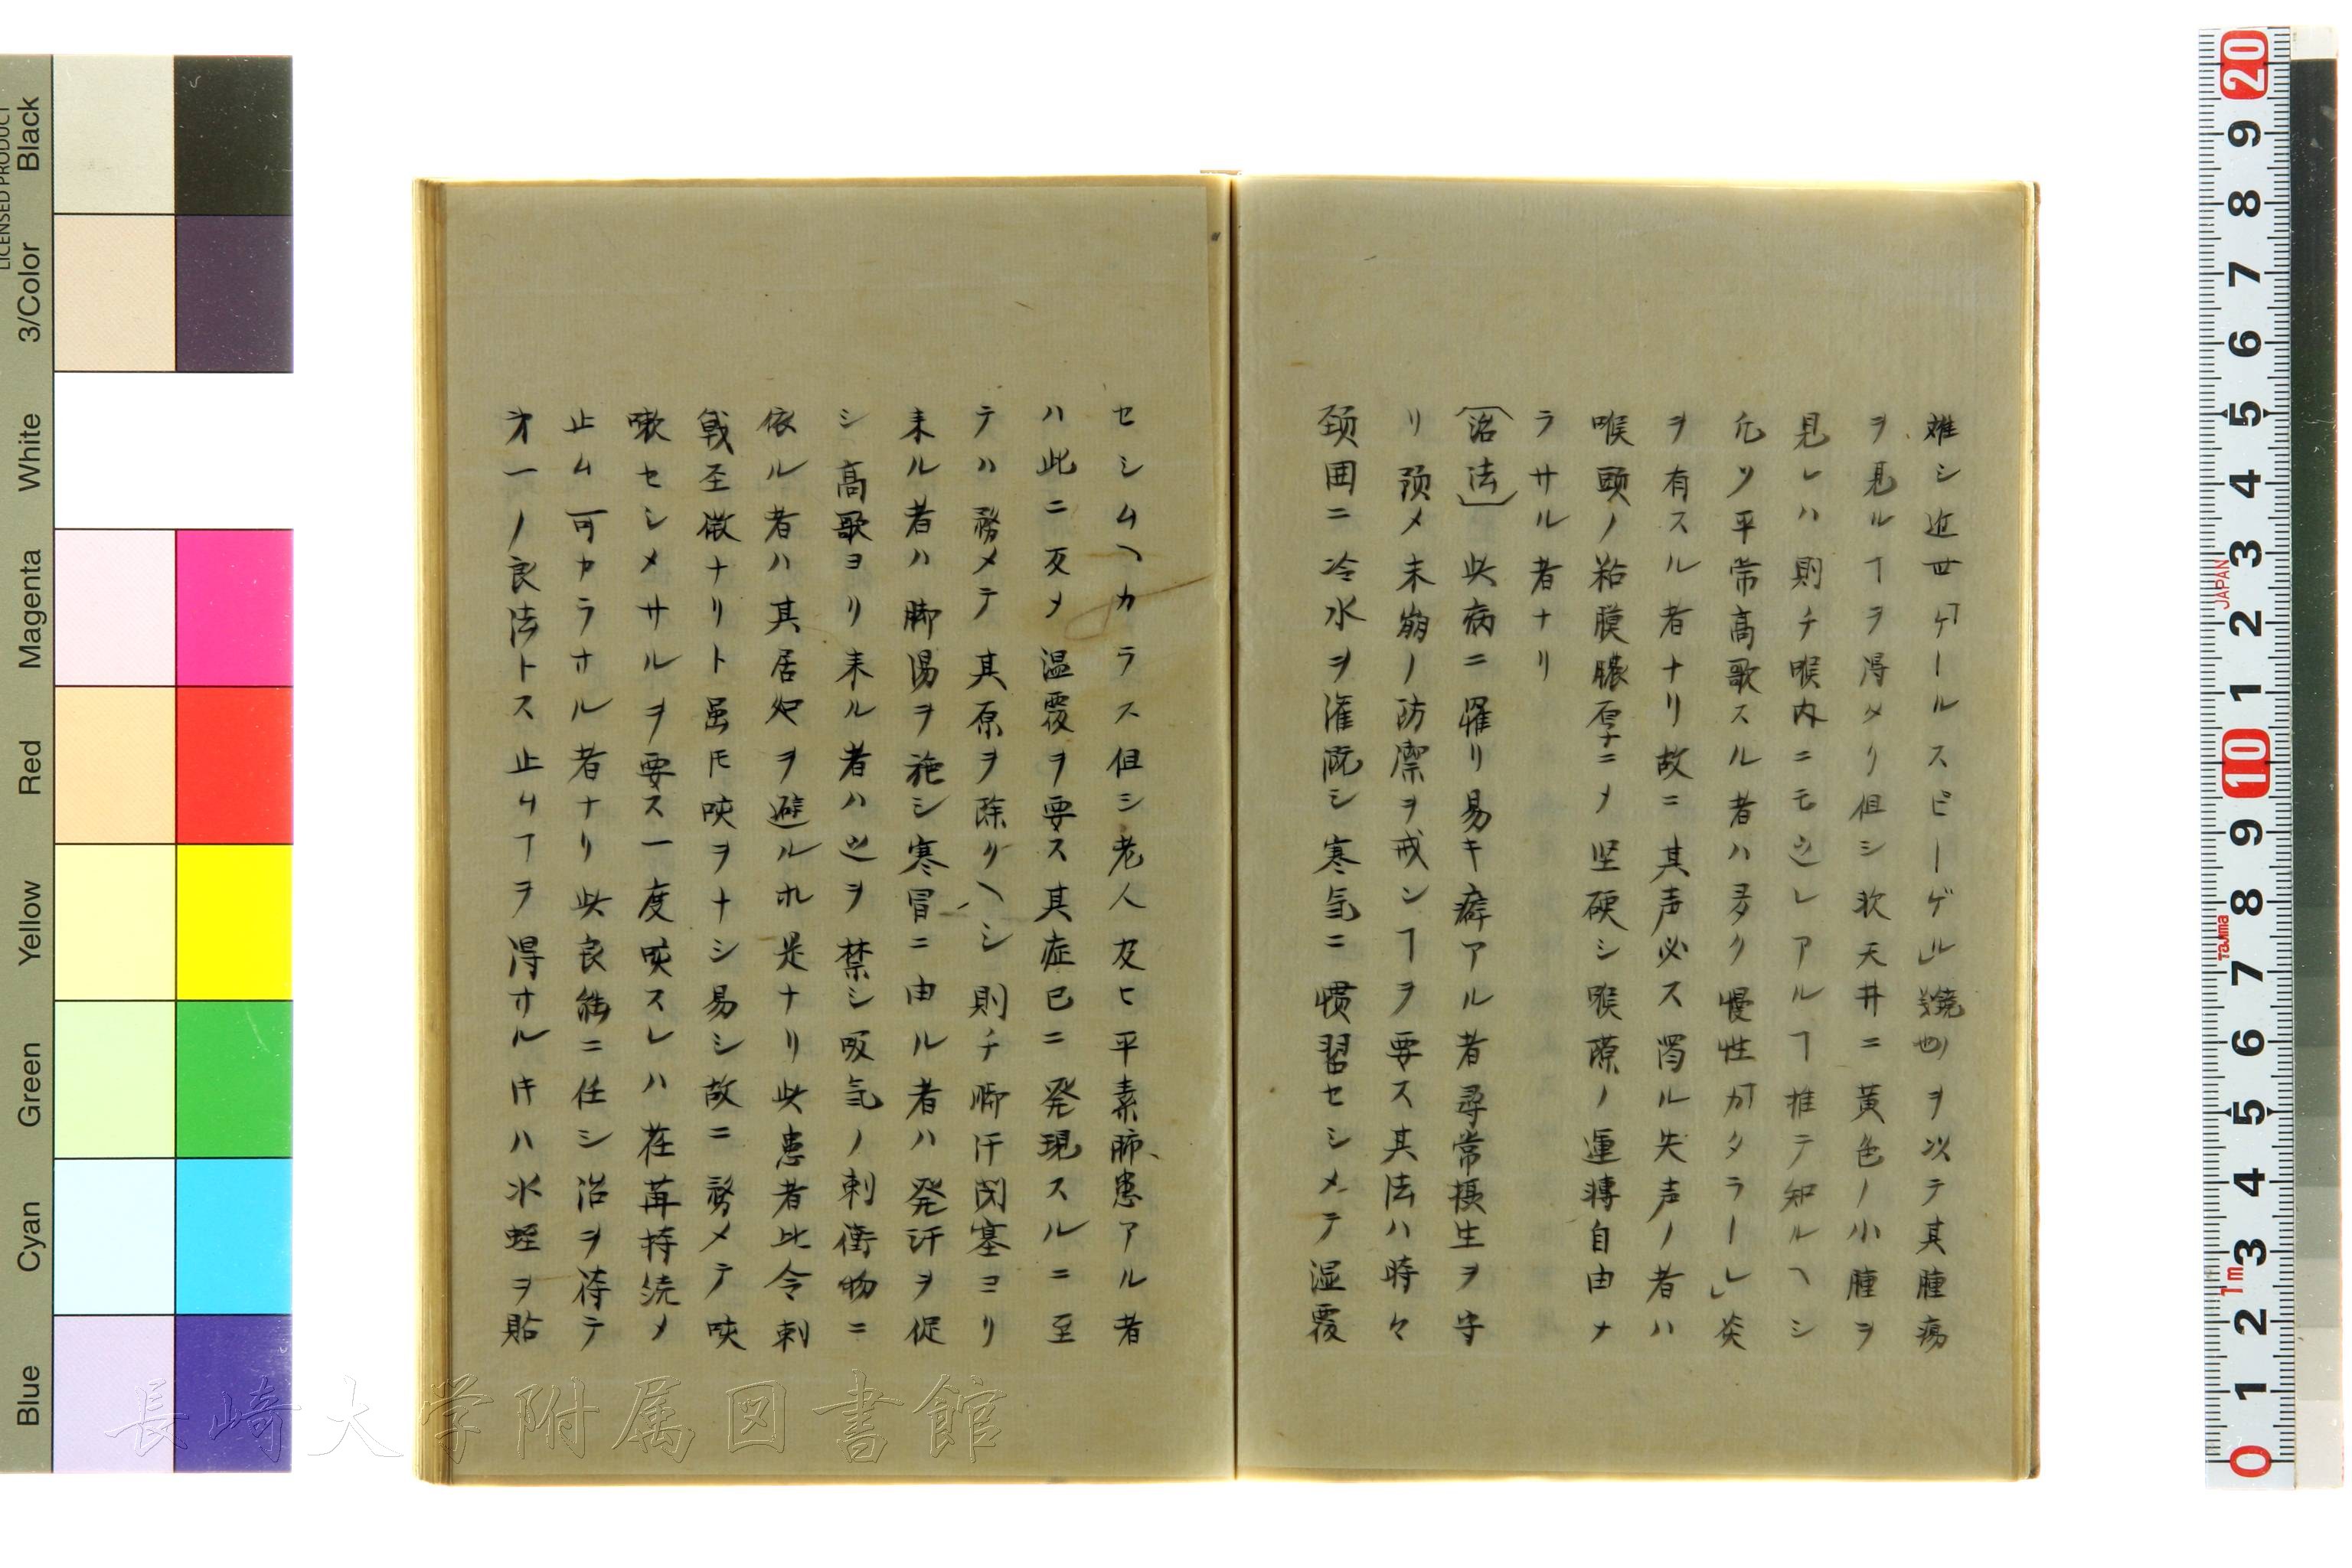 難シ近世「ケールスピーゲル」(鏡也)ヲ以テ其腫瘍
ヲ見ルヿヲ得タリ但シ軟天井ニ黄色ノ小腫ヲ
見レハ則チ喉内ニモ之レアルヿ推テ知ルヘシ
凢ソ平常高歌スル者ハ多ク慢性「カタラーレ」炎
ヲ有スル者ナリ故ニ其声必ス濁ル失声ノ者ハ
喉頭ノ粘膜膿厚ニメ坚硬シ喉隙ノ運轉自由ナ
ラサル者ナリ
〔治法〕 此病ニ罹リ易キ癖アル者尋常摂生ヲ守
リ預メ未崩ノ防禦ヲ戒ンヿヲ要ス其法ハ時々
頚囲ニ冷水ヲ潅既シ寒気ニ慣習セシメテ湿覆
セシムヘカラス但シ老人及ヒ平素肺患アル者
ハ此ニ反メ温覆ヲ要ス其症已ニ発現スルニ至
テハ務メテ其原ヲ除クヘシ則チ脚汗閉塞ヨリ
来ル者ハ脚湯ヲ施シ寒冒ニ由ル者ハ発汗ヲ促
シ高歌ヨリ来ル者ハ之ヲ禁シ吸気ノ刺衝物ニ
依ル者ハ其居処ヲ避ル杯是ナリ此患者比令刺
戟至微ナリト虽𪜈咳ヲナシ易シ故ニ務メテ咳
嗽セシメサルヲ要ス一度咳スレハ荏苒持続メ
止ム可カラサル者ナリ此良能ニ任シ治ヲ待テ
才一ノ良法トス止ムヿヲ得サル片ハ水蛭ヲ貼
長崎大学附属図書館
LICENSED PRODUCT
Black
3/Color
White
Magenta
Red
Yellow
Green
Cyan
Blue
20
9
8
7
6
5
4
3
2
1
10
9
8
7
6
5
4
3
2
1
0
JAPAN
Tajima
1m